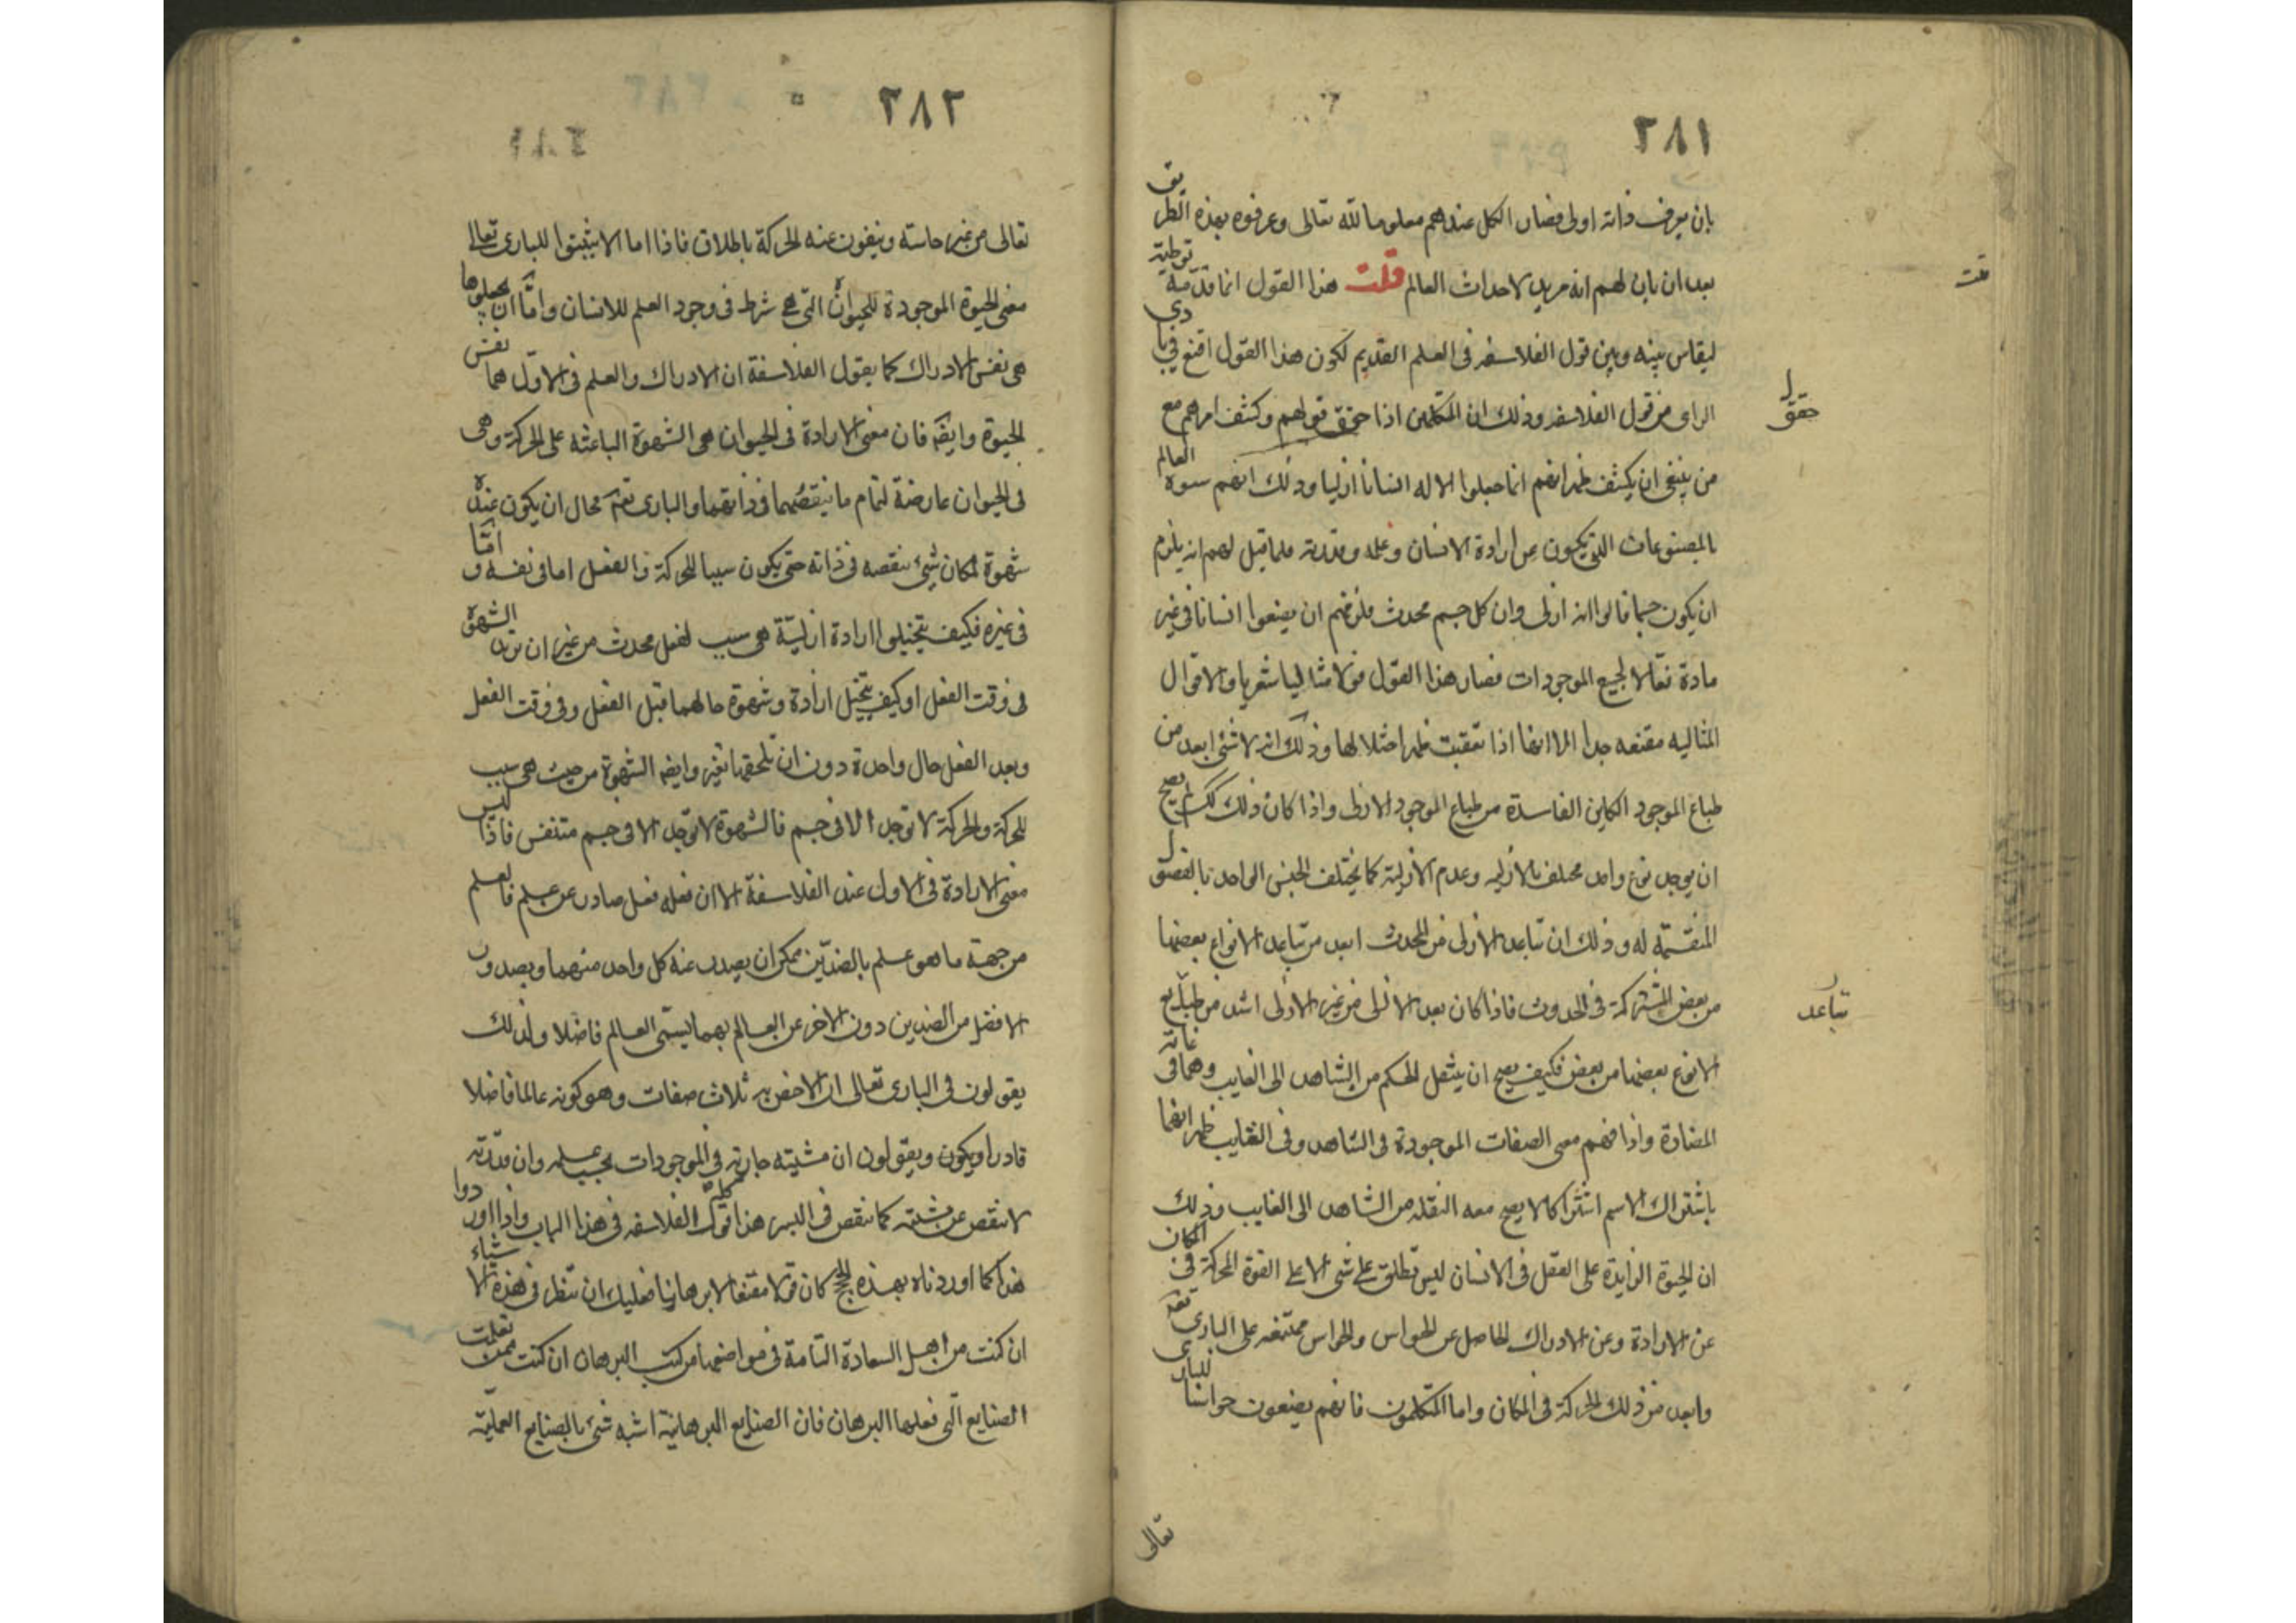 ٢٨١
بان يعرف ذاته اولى فصار الكل عندهم معلوما لله تعالى وعرفوه بهذه الطريق
بعد ان بان لهم انه مريد لاحداث العالم قلت هذا القول انما قدمه توطية
قلت
ليقاس بينه وبين قول الفلاسفه فى العلم القديم لكون هذا القول اقنع فى بادى
الراى من قول الفلاسفه وذلك ان المتكلمين اذا حقق قولهم وكشف امرهم مع
حقق
من ينبغى ان يكشف ظهر انهم انما جعلوا الاله انسانا ازليا وذلك انهم العالم
بالمصنوعات التى تكون عن ارادة الانسان وعلمه وقدرته فلما قيل لهم انه يلزم
ان يكون جسما قالوا انه ازلى وان كل جسم محدث فلزمهم ان يضعوا انسانا فى غير
مادة فعّالا لجميع الموجودات فصار هذا القول قولا مثاليا شعريا والاقوال
المثاليه مقنعه جدا الا انها اذا تعقبت ظهر اختلالها وذلك انه لا شئ ابعد من
طباع الموجود الكاين الفاسدة من طباع الموجود الازلى واذا كان ذلك كك لم يصح
ان يوجد نوع واحد مختلف بالازليه وعدم الازلية كما يختلف الجنس الواحد بالفصول
المنقسمة له وذلك ان تباعد الازلى من المحدث ابعد من تباعد الانواع بعضها
من بعض المشتركة فى الحدوث فاذا كان بعد الازلى من غير الازلى اشد من تباعد
تباعد
الانواع بعضها من بعض فكيف يصح ان ينتقل الحكم من الشاهد الى الغايب وهما فى غاية
المضادة واذا فهم معنى الصفات الموجودة فى الشاهد وفى الغايب ظهر انهما
باشتراك الاسم اشتراكا لا يصح معه النقله من الشاهد الى الغايب وذلك
ان الحيوة الزايدة على العقل فى الانسان ليس تطلق على شى الا على القوة المحركة فى المكان
عن الارادة وعن الادراك الحاصل عن الحواس والحواس ممتنعه على البارى تعه
وابعد من ذلك الحركة فى المكان واما المتكلمون فانهم يضعون حواسا للبارى
تعالى
٢٨٢
تعالى من غير حاسته وينفون عنه الحركة باطلاق فاذا اما الا يثبتوا للبارى تعالى
معنى الحيوة الموجودة للحيوان التى هى شرط فى وجود العلم للانسان واما ان يجعلوها
هى نفس الادراك كما يقول الفلاسفة ان الادراك والعلم فى الاول هما نفس
الحيوة وايضه فان معنى الارادة فى الحيوان هى الشهوة الباعثه على الحركة وهى
فى الحيوان عارضة لتمام ما ينقصهما فى ذاتهما والبارى تعه محال ان يكون عنده
شهوة لمكان شئ ينقصه فى ذاته حتى يكون سببا للحركة والفعل اما فى نفسه واما
فى غيره فكيف يتخيلوا ارادة ازلية هى سبب لفعل محدث من غير ان تزيد الشهوة
فى وقت الفعل او كيف يتخيل ارادة وشهوة حالهما قبل الفعل وفى وقت الفعل
وبعد الفعل حال واحدة دون ان تلحقها تغير وايضه الشهوة من حيث هى سبب
للحركة والحركة لا توجد الا فى جسم فالشهوة لا توجد الا فى جسم متنفس فاذا ليس
معنى الارادة فى الاول عند الفلاسفة الا ان فعله فعل صادر عن علم فالعلم
من جهة ما هو علم بالضدين ممكن ان يصدر عنه كل واحد منهما وبصدور
الافضل من الضدين دون الاخر عن العالم بهما يسمى العالم فاضلا ولذلك
يقولون فى البارى تعالى ان الاخص به ثلاث صفات وهو كونه عالما فاضلا
قادرا ويكون ويقولون ان مشيته جارية فى الموجودات بحسب علمه وان قدرته
لا تنقص عن مشيته كما تنقص فى البشر هذا كله قول الفلاسفه فى هذا الباب واذا اوردوا
هذا كما اوردناه بهذه الحجج كان قولا مقنعا لا برهانيا فعليك ان تنظر فى هذه الاشياء
ان كنت من اهل السعادة التامة فى مواضعها من كتب البرهان ان كنت ممن تعلمت
الصنايع التى فعلها البرهان فان الصنايع البرهانية اشبه شئ بالصنايع العملية